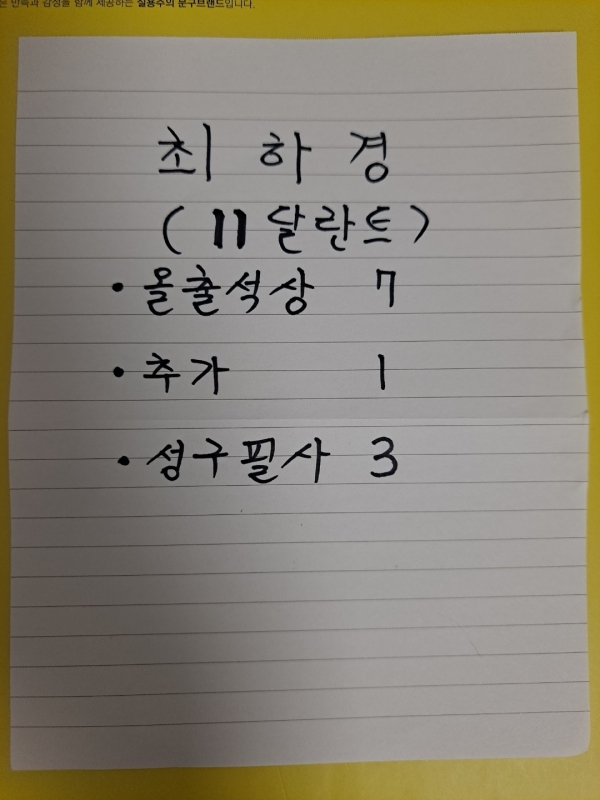 만족과 감성을 함께 제공하는 실용주의 문구브랜드입니다.
최 하 경
( 11 달란트 )
• 올출석상 7
• 추가 1
• 성구필사 3